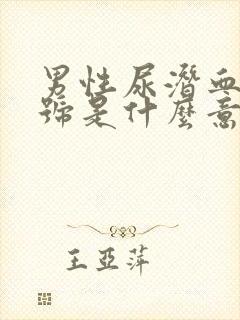 男性尿潛血
號是什麼意
王亞萍